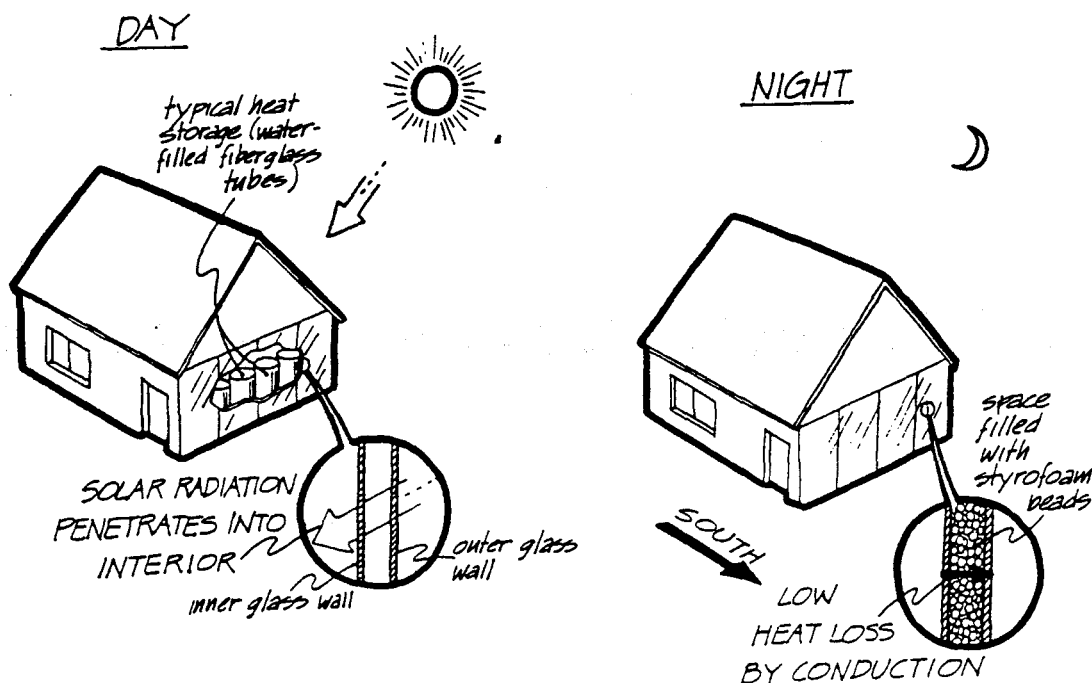 DAY
typical heat
storage (water-
filled fiberglass
tubes)
SOLAR RADIATION
PENETRATES INTO
INTERIOR
inner glass wall
outer glass
wall
NIGHT
space
filled
with
styrofoam
beads
SOUTH
LOW
HEAT LOSS
BY CONDUCTION